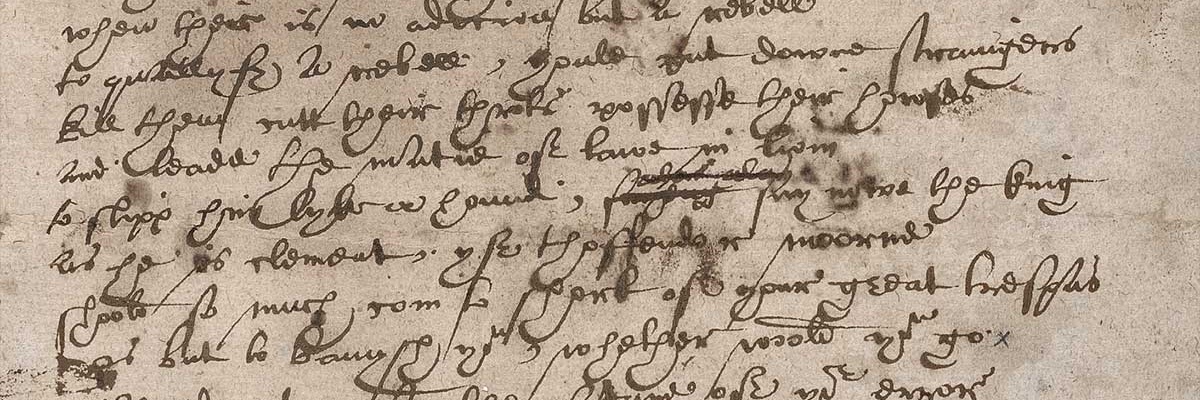 when ther is no adicion but a rebell
to quallyfy a rebell, youle put downe straingers
kill them cutt their throts possesse their howses
and leade the matie of lawe in liom
to slipp him lyke a hound; say nowe the king
as he is clement, yf thoffendor moorne
shoold so much com to short of your great trespas
as but to banysh you, whether woold you go.
nature of yor error